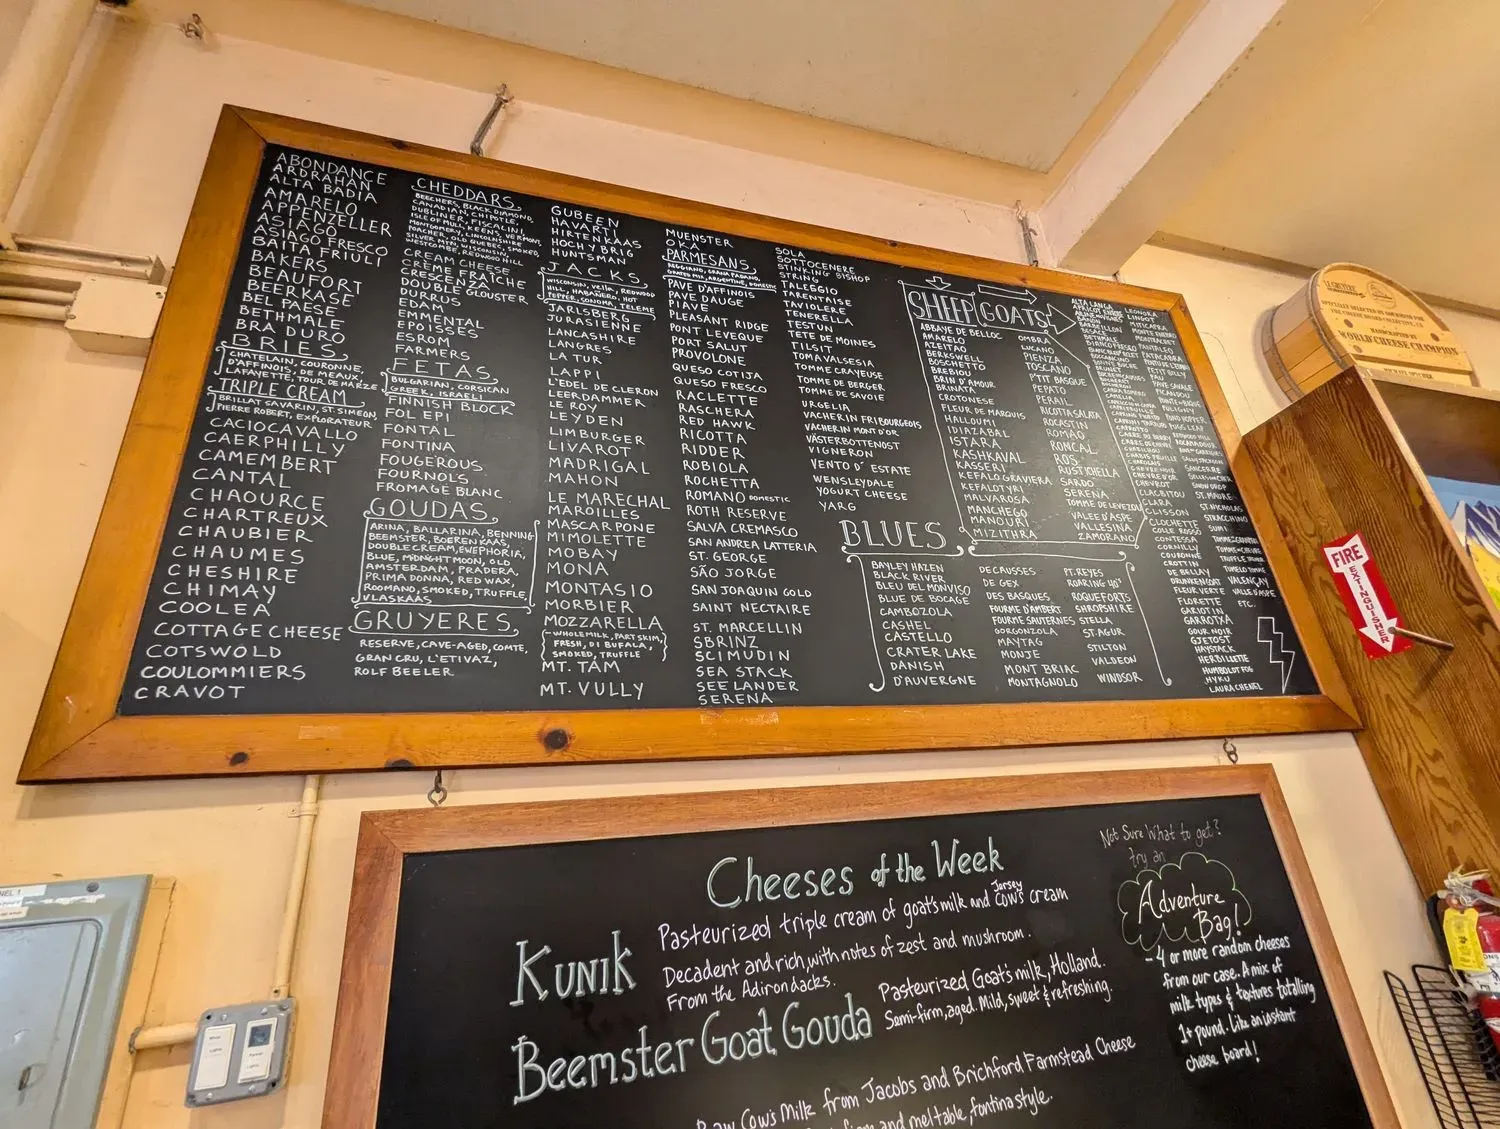 ABONDANCE
ARDRAHAN
ALTA BADIA
AMARELO
APPENZELLER
ASIAGO
ASIAGO FRESCO
BAITA FRIULI
BAKERS
BEAUFORT
BEERKASE
BEL PAESE
BETHMALE
BRA DURO
BRIES
CHATELAIN, COURONNE,
D'AFFINOIS, DE MEAUX,
LAFAYETTE, TOUR DE MARZE
TRIPLE CREAM
BRILLAT SAVARIN, ST. SIMEON,
PIERRE ROBERT, EXPLORATEUR
CACIOCAVALLO
CAERPHILLY
CAMEMBERT
CANTAL
CHAOURCE
CHARTREUX
CHAUBIER
CHAUMES
CHESHIRE
CHIMAY
COOLEA
COTTAGE CHEESE
COTSWOLD
COULOMMIERS
CRAVOT
CHEDDARS
BEECHERS, BLACK DIAMOND,
CANADIAN, CHIPOTLE,
DUBLINER, FISCALINI,
ISLE OF MULL, KEENS, VERMONT,
CREAM CHEESE
CRÈME FRAÎCHE
CRESCENZA
DOUBLE GLOUSTER
DURRUS
EDAM
EMMENTAL
EPOISSES
ESROM
FARMERS
FETAS
BULGARIAN, CORSICAN
GREEK, ISRAELI
FINNISH BLOCK
FOL EPI
FONTAL
FONTINA
FOUGEROUS
FOURNOLS
FROMAGE BLANC
GOUDAS
ARINA, BALLARINA, BENNING
BEEMSTER, BOEREN KAAS,
DOUBLE CREAM, EWEPHORIA,
BLUE, MIDNIGHT MOON, OLD
AMSTERDAM, PRADERA,
PRIMA DONNA, RED WAX,
ROOMANO, SMOKED, TRUFFLE,
VLASKAAS
GRUYERES
RESERVE, CAVE-AGED, COMTE,
GRAN CRU, L'ETIVAZ,
ROLF BEELER
GUBEEN
HAVARTI
HIRTENKAAS
HOCH Y BRIG
HUNTSMAN
JACKS
WISCONSIN, VELLA, REDWOOD
HILL, HABAÑERO, HOT
PEPPER, SONOMA, TELEME
JARLSBERG
JURASIENNE
LANCASHIRE
LANGRES
LA TUR
LAPPI
L'EDEL DE CLERON
LEERDAMMER
LE ROY
LEYDEN
LIMBURGER
LIVAROT
MADRIGAL
MAHON
LE MARECHAL
MAROILLES
MASCARPONE
MIMOLETTE
MOBAY
MONA
MONTASIO
MORBIER
MOZZARELLA
WHOLE MILK, PART SKIM,
FRESH, DI BUFALA,
SMOKED, TRUFFLE
MT. TAM
MT. VULLY
MUENSTER
OKA
PARMESANS
REGGIANO, GRANA PADANO,
GRATED MIX, ARGENTINE, DOMESTIC
PAVE D'AFFINOIS
PAVE D'AUGE
PIAVE
PLEASANT RIDGE
PONT LEVEQUE
PORT SALUT
PROVOLONE
QUESO COTIJA
QUESO FRESCO
RACLETTE
RASCHERA
RED HAWK
RICOTTA
RIDDER
ROBIOLA
ROCHETTA
ROMANO DOMESTIC
ROTH RESERVE
SALVA CREMASCO
SAN ANDREA LATTERIA
ST. GEORGE
SÃO JORGE
SAN JOAQUIN GOLD
SAINT NECTAIRE
ST. MARCELLIN
SBRINZ
SCIMUDIN
SEA STACK
SEELANDER
SERENA
SOLA
SOTTOCENERE
STINKING BISHOP
STRING
TALEGGIO
TARENTAISE
TAVIOLÈRE
TENERELLA
TESTUN
TETE DE MOINES
TILSIT
TOMA VALSESIA
TOMME CRAYEUSE
TOMME DE BERGER
TOMME DE SAVOIE
URGÈLIA
VACHERIN FRIBOURGEOIS
VACHERIN MONT D'OR
VÄSTERBOTTENOST
VIGNERON
VENTO D' ESTATE
WENSLEYDALE
YOGURT CHEESE
YARG
BLUES
BAYLEY HAZEN
BLACK RIVER
BLEU DEL MONVISO
BLUE DE BOCAGE
CAMBOZOLA
CASHEL
CASTELLO
CRATER LAKE
DANISH
D'AUVERGNE
DECAUSSES
DE GEX
DES BASQUES
FOURME D'AMBERT
FOURME SAUTERNES
GORGONZOLA
MAYTAG
MONJE
MONT BRIAC
MONTAGNOLO
PT. REYES
ROARING 40s
ROQUEFORTS
SHROPSHIRE
STELLA
ST AGUR
STILTON
VALDEON
WINDSOR
SHEEP
ABBAYE DE BELLOC
AMARELO
AZEITAO
BERKSWELL
BOSCHETTO
BREBIOU
BRIN D'AMOUR
BRUNATE
CROTONESE
FLEUR DE MARQUIS
HALLOUMI
IDIAZABAL
ISTARA
KASHKAVAL
KASSERI
KEFALOGRAVIERA
KEFALOTYRI
MALVAROSA
MANCHEGO
MANOURI
MIZITHRA
OMBRA
LUCANO
PIENZA
TOSCANO
P'TIT BASQUE
PEPATO
PERAIL
RICOTTA SALATA
ROCASTIN
ROMAO
RONCAL
ROS
RUSTICHELLA
SARDO
SERENA
TOMME DE LEVEZOU
VALLEE D'ASPE
VALLESINA
ZAMORANO
GOATS
ALTA LANGA
CLACBITOU
CLARA
CLISSON
CLOCHETTE
CONTESSA
CORNILLY
COURONNE
CROTTIN
DE BELLAY
DRUNKEN GOAT
FLEUR VERTE
FLORETTE
GARROTIN
GARROTXA
GOUR NOIR
GJETOST
HAYSTACK
HERBILLETTE
HUMBOLDT FOG
HYKU
LAURA CHENEL
LEONORA
LINGOT
MITICABRA
SANCERRE
SNOW DROP
ST. MAURE
ST. NICHOLAS
STRACCHINO
VALENÇAY
VALLE D'ASPE
ETC.
LE GRUYERE
WORLD CHEESE CHAMPION
FIRE
EXTINGUISHER
Cheeses of the Week
KUNIK
Pasteurized triple cream of goat's milk and Jersey cow's cream
Decadent and rich, with notes of zest and mushroom.
From the Adirondacks.
Beemster Goat Gouda
Pasteurized Goat's milk, Holland.
Semi-firm, aged. Mild, sweet & refreshing.
Raw Cow's Milk from Jacobs and Brichford Farmstead Cheese
and meltable, fontina style.
Not Sure What to get?
try an
Adventure
Bag!
- 4 or more random cheeses
from our case. A mix of
milk types & textures totalling
1+ pound. Like an instant
cheese board!